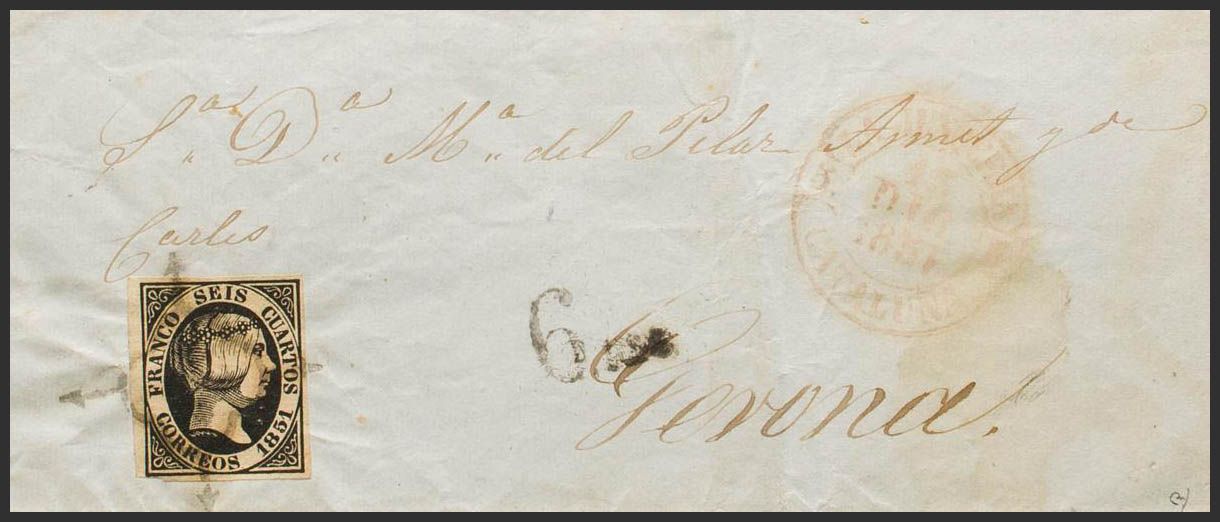 S.ª D.ª M.ª del Pilar Armet y de
Carles
FRANCO SEIS CUARTOS
CORREOS 1851
6
Gerona.
DIC
1851
CATALUÑA